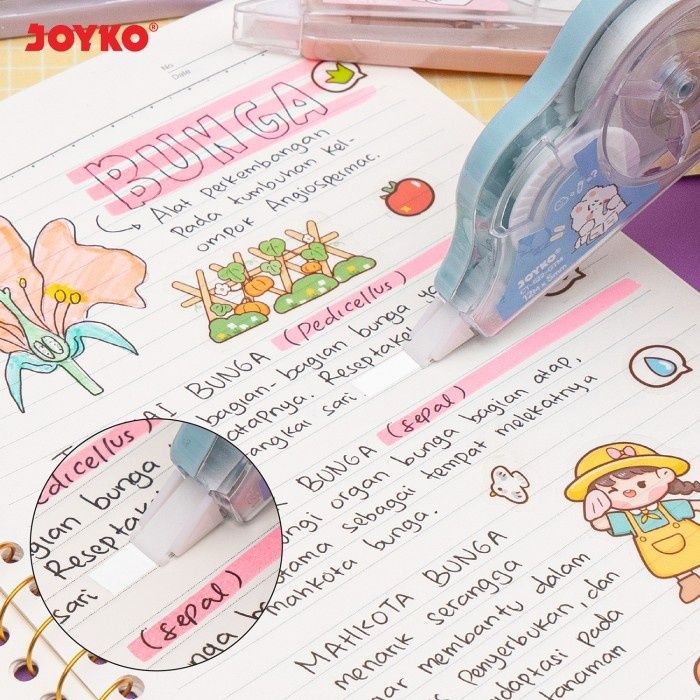 JOYKO®
No
Date
BUNGA
Alat perkembangan
Pada tumbuhan kel-
ompok Angiospermae.
JOYKO
12M x 5mm
AI BUNGA (Pedicellus)
bagian-bagian bunga
atapnya. Reseptakel
angkai sari.
BUNGA (sepal)
ungi organ bunga bagian atap,
utama sebagai tempat melekatnya
Mahkota bunga.
MAHKOTA BUNGA
menarik serangga
membantu dalam
Penyerbukan, dan
adaptasi Pada
anaman
dicellus)
gian bunga
Reseptake
sari
(sepal)